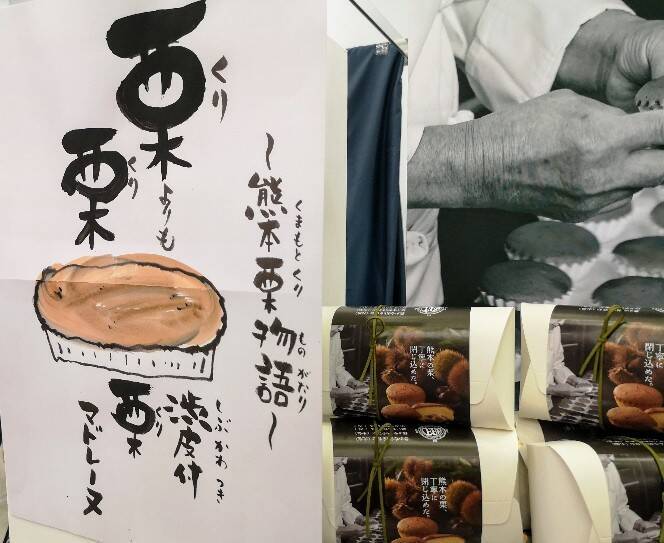 栗よりも
くり
栗
くり
〜熊本栗物語〜
くまもとくり
ものがたり
渋皮付
しぶかわつき
栗
くり
マドレーヌ
熊本の栗、
丁寧に
閉じ込めた。
熊本の栗、
丁寧に
閉じ込めた。
熊本の栗、
丁寧に
閉じ込めた。